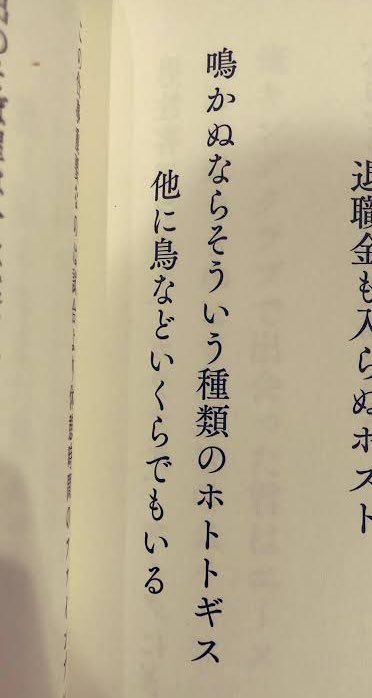 退職金も入らぬホスト
鳴かぬならそういう種類のホトトギス
他に鳥などいくらでもいる